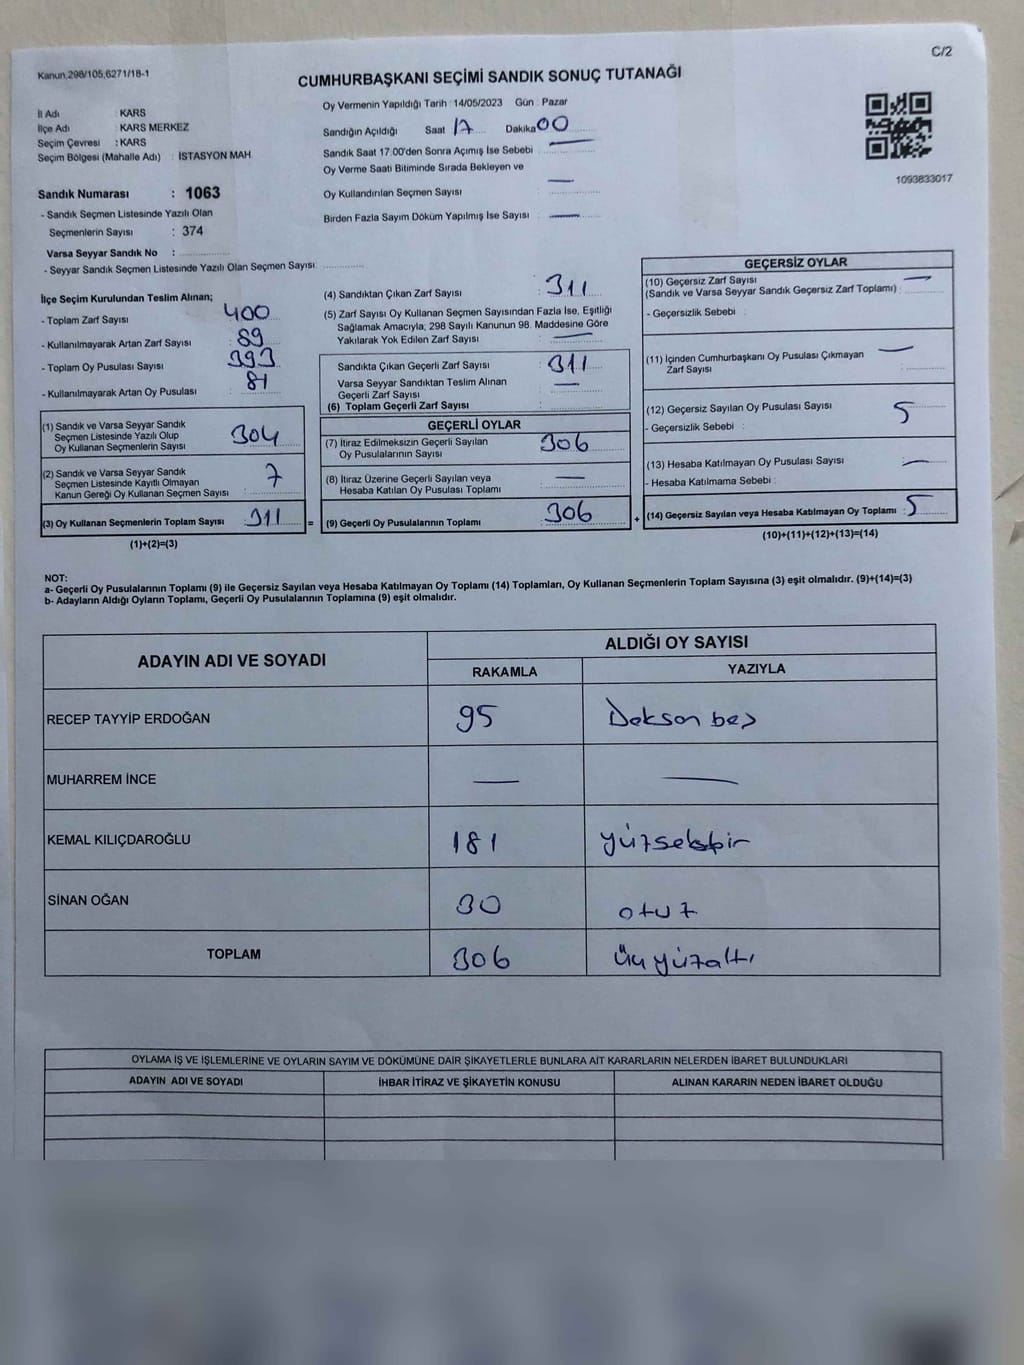 C/2
Kanun,298/105,6271/18-1
CUMHURBAŞKANI SEÇİMİ SANDIK SONUÇ TUTANAĞI
İl Adı : KARS
İlçe Adı : KARS MERKEZ
Seçim Çevresi : KARS
Seçim Bölgesi (Mahalle Adı) : İSTASYON MAH.
Sandık Numarası : 1063
- Sandık Seçmen Listesinde Yazılı Olan
Seçmenlerin Sayısı : 374
Varsa Seyyar Sandık No :
- Seyyar Sandık Seçmen Listesinde Yazılı Olan Seçmen Sayısı:
Oy Vermenin Yapıldığı Tarih : 14/05/2023 Gün : Pazar
Sandığın Açıldığı Saat 17 Dakika 00
Sandık Saat 17.00'den Sonra Açımış İse Sebebi : —
Oy Verme Saati Bitiminde Sırada Bekleyen ve
Oy Kullandırılan Seçmen Sayısı : —
Birden Fazla Sayım Döküm Yapılmış İse Sayısı : —
1093833017
İlçe Seçim Kurulundan Teslim Alınan;
- Toplam Zarf Sayısı : 400
- Kullanılmayarak Artan Zarf Sayısı : 89
- Toplam Oy Pusulası Sayısı : 393
- Kullanılmayarak Artan Oy Pusulası : 81
(1) Sandık ve Varsa Seyyar Sandık
Seçmen Listesinde Yazılı Olup
Oy Kullanan Seçmenlerin Sayısı : 304
(2) Sandık ve Varsa Seyyar Sandık
Seçmen Listesinde Kayıtlı Olmayan
Kanun Gereği Oy Kullanan Seçmen Sayısı : 7
(3) Oy Kullanan Seçmenlerin Toplam Sayısı : 311
(1)+(2)=(3)
(4) Sandıktan Çıkan Zarf Sayısı : 311
(5) Zarf Sayısı Oy Kullanan Seçmen Sayısından Fazla İse, Eşitliği
Sağlamak Amacıyla, 298 Sayılı Kanunun 98. Maddesine Göre
Yakılarak Yok Edilen Zarf Sayısı : —
Sandıkta Çıkan Geçerli Zarf Sayısı : 311
Varsa Seyyar Sandıktan Teslim Alınan
Geçerli Zarf Sayısı : —
(6) Toplam Geçerli Zarf Sayısı :
GEÇERLİ OYLAR
(7) İtiraz Edilmeksizin Geçerli Sayılan
Oy Pusulalarının Sayısı : 306
(8) İtiraz Üzerine Geçerli Sayılan veya
Hesaba Katılan Oy Pusulası Toplamı : —
= (9) Geçerli Oy Pusulalarının Toplamı : 306
GEÇERSİZ OYLAR
(10) Geçersiz Zarf Sayısı
(Sandık ve Varsa Seyyar Sandık Geçersiz Zarf Toplamı) : —
- Geçersizlik Sebebi :
(11) İçinden Cumhurbaşkanı Oy Pusulası Çıkmayan
Zarf Sayısı : —
(12) Geçersiz Sayılan Oy Pusulası Sayısı : 5
- Geçersizlik Sebebi :
(13) Hesaba Katılmayan Oy Pusulası Sayısı : —
- Hesaba Katılmama Sebebi :
+ (14) Geçersiz Sayılan veya Hesaba Katılmayan Oy Toplamı : 5
(10)+(11)+(12)+(13)=(14)
NOT:
a- Geçerli Oy Pusulalarının Toplamı (9) ile Geçersiz Sayılan veya Hesaba Katılmayan Oy Toplamı (14) Toplamları, Oy Kullanan Seçmenlerin Toplam Sayısına (3) eşit olmalıdır. (9)+(14)=(3)
b- Adayların Aldığı Oyların Toplamı, Geçerli Oy Pusulalarının Toplamına (9) eşit olmalıdır.
ADAYIN ADI VE SOYADI ALDIĞI OY SAYISI
RAKAMLA YAZIYLA
RECEP TAYYİP ERDOĞAN 95 Doksan beş
MUHARREM İNCE — —
KEMAL KILIÇDAROĞLU 181 yüzseksbir
SİNAN OĞAN 30 otuz
TOPLAM 306 Üçyüzaltı
OYLAMA İŞ VE İŞLEMLERİNE VE OYLARIN SAYIM VE DÖKÜMÜNE DAİR ŞİKAYETLERLE BUNLARA AİT KARARLARIN NELERDEN İBARET BULUNDUKLARI
ADAYIN ADI VE SOYADI İHBAR İTİRAZ VE ŞİKAYETİN KONUSU ALINAN KARARIN NEDEN İBARET OLDUĞU